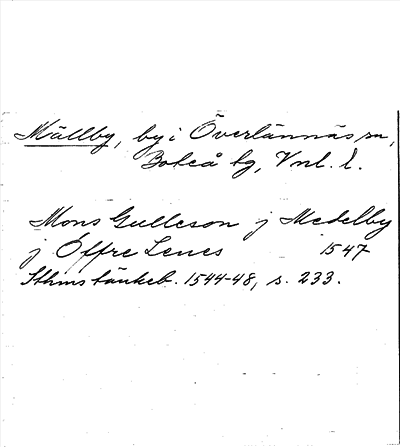 Mällby, by i Överlännäs sn,
Boteå tg, Vnl. l.
Mons Gulleson j Medelby
j Öffre Lenes 1547
Sthms tänkeb. 1544-48, s. 233.